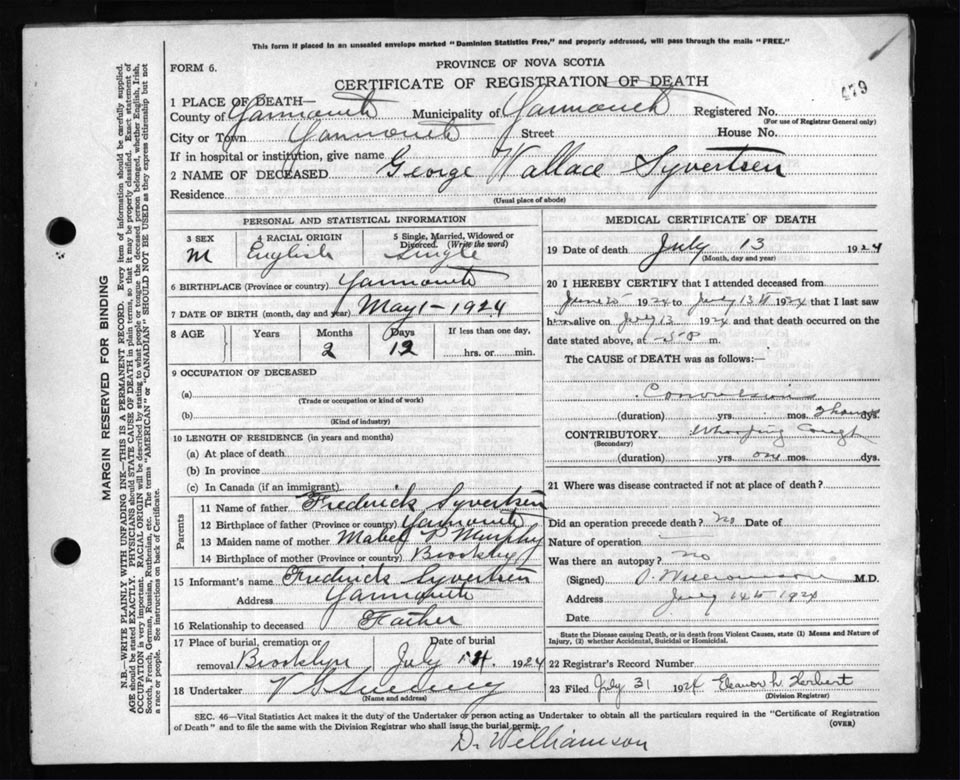 This form if placed in an unsealed envelope marked "Dominion Statistics Free," and properly addressed, will pass through the mails "FREE."
FORM 6.
PROVINCE OF NOVA SCOTIA
CERTIFICATE OF REGISTRATION OF DEATH
479
1 PLACE OF DEATH—
County of Yarmouth Municipality of Yarmouth Registered No.
(For use of Registrar General only)
City or Town Yarmouth Street House No.
If in hospital or institution, give name
2 NAME OF DECEASED George Wallace Syvertsen
Residence
(Usual place of abode)
PERSONAL AND STATISTICAL INFORMATION
3 SEX 4 RACIAL ORIGIN 5 Single, Married, Widowed or Divorced. (Write the word)
M English Single
6 BIRTHPLACE (Province or country) Yarmouth
7 DATE OF BIRTH (month, day and year) May 1 - 1924
8 AGE Years Months Days If less than one day,
2 12 hrs. or min.
9 OCCUPATION OF DECEASED
(a)
(Trade or occupation or kind of work)
(b)
(Kind of industry)
10 LENGTH OF RESIDENCE (in years and months)
(a) At place of death
(b) In province
(c) In Canada (if an immigrant)
Parents
11 Name of father Frederick Syvertsen
12 Birthplace of father (Province or country) Yarmouth
13 Maiden name of mother Mabel P Murphy
14 Birthplace of mother (Province or country) Brooklyn
15 Informant's name Frederick Syvertsen
Address Yarmouth
16 Relationship to deceased Father
17 Place of burial, cremation or Date of burial
removal Brooklyn July 1924
18 Undertaker V S Sweeny
(Name and address)
MEDICAL CERTIFICATE OF DEATH
19 Date of death July 13 1924
(Month, day and year)
20 I HEREBY CERTIFY that I attended deceased from
June 20 1924 to July 13th 1924 that I last saw
him alive on July 13 1924 and that death occurred on the
date stated above, at m.
The CAUSE OF DEATH was as follows:
Convulsions
(duration) yrs. mos. dys.
CONTRIBUTORY Whooping Cough
(Secondary)
(duration) yrs. one mos. dys.
21 Where was disease contracted if not at place of death?
Did an operation precede death? no Date of
Nature of operation
Was there an autopsy? no
(Signed) D. Williamson M.D.
Address July 14th 1924
Date
State the Disease causing Death, or in death from Violent Causes, state (1) Means and Nature of
Injury, (2) whether Accidental, Suicidal or Homicidal.
22 Registrar's Record Number
23 Filed July 31 1924 Eleanor h. Herbert
(Division Registrar)
SEC. 46—Vital Statistics Act makes it the duty of the Undertaker or person acting as Undertaker to obtain all the particulars required in the "Certificate of Registration
of Death" and to file the same with the Division Registrar who shall issue the burial permit. (OVER)
D. Williamson
MARGIN RESERVED FOR BINDING
N.B.—WRITE PLAINLY WITH UNFADING INK—THIS IS A PERMANENT RECORD. Every item of information should be carefully supplied.
AGE should be stated EXACTLY. PHYSICIANS should STATE CAUSE OF DEATH in plain terms, so that it may be properly classified. Exact statement of
OCCUPATION is very important. RACIAL ORIGIN will be described by stating to what people or tongue the deceased person belonged, whether English, Irish,
Scotch, French, German, Russian, Ruthenian, etc. The terms "AMERICAN" or "CANADIAN" SHOULD NOT BE USED as they express citizenship but not
a race or people. See instructions on back of Certificate.